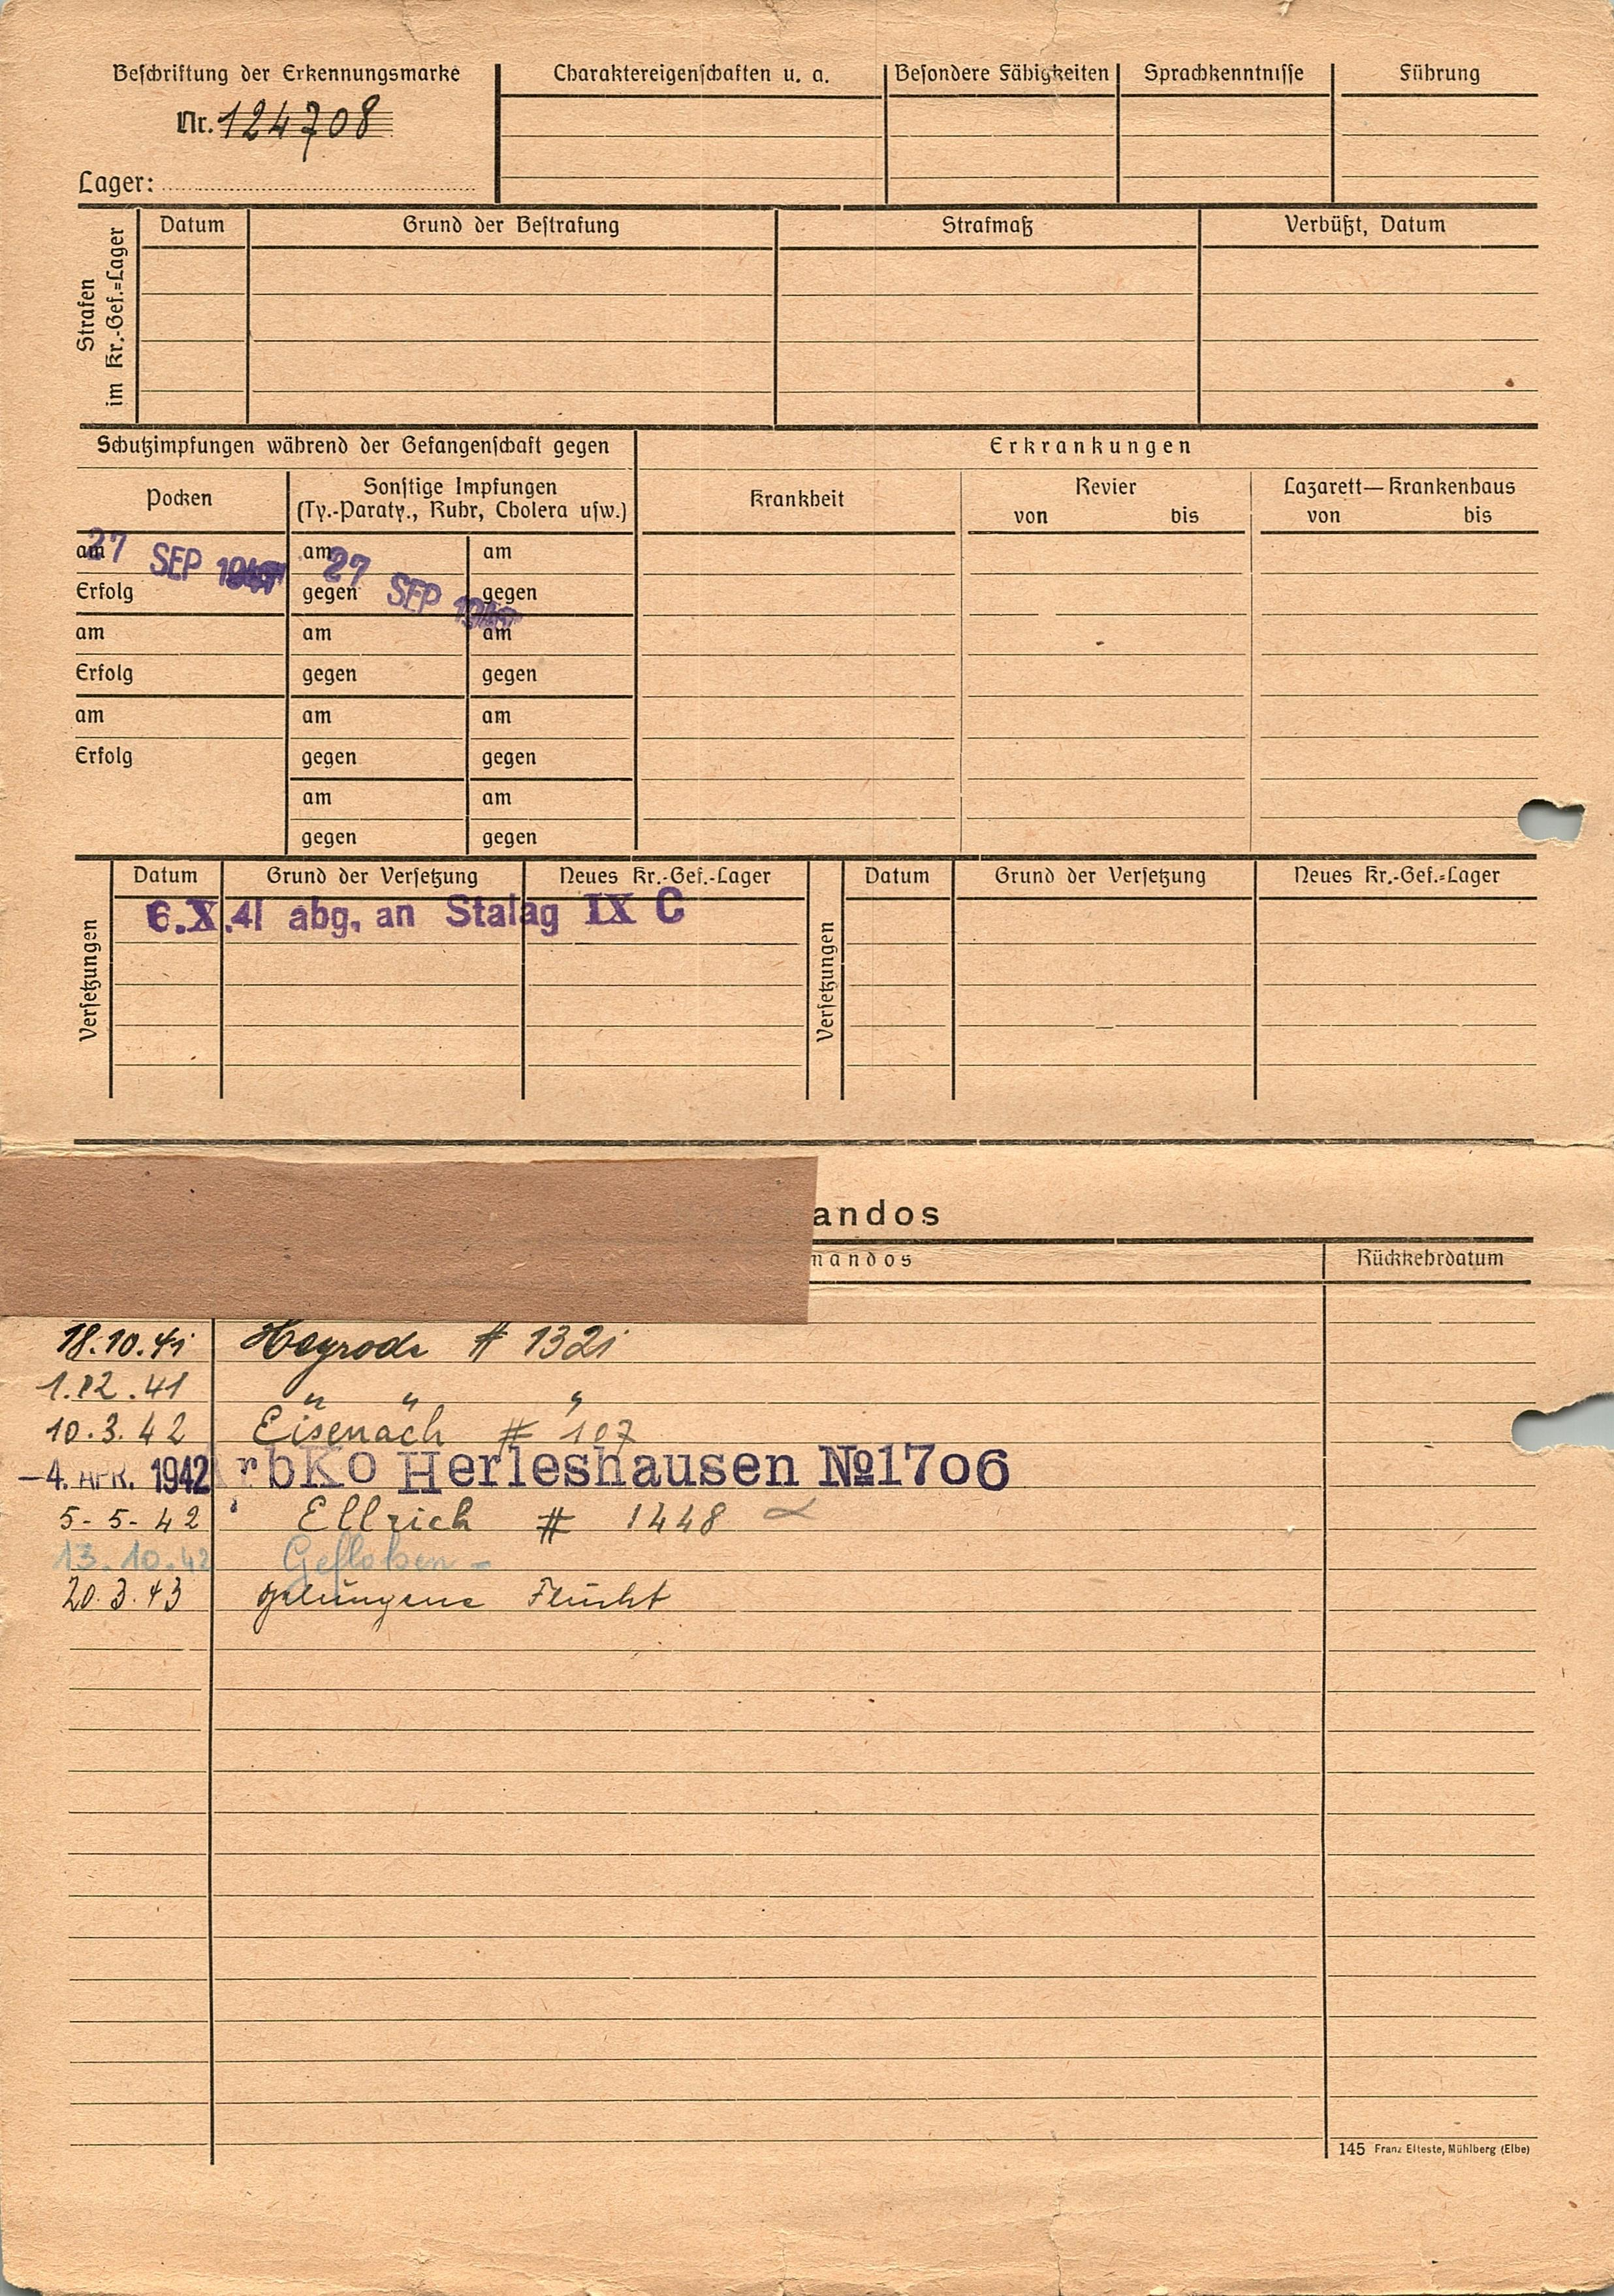 Beschriftung der Erkennungsmarke
Nr. 124708
Lager:
Charaktereigenschaften u. a.
Besondere Fähigkeiten
Sprachkenntnisse
Führung
Strafen
im Kr.-Gef.=Lager
Datum
Grund der Bestrafung
Strafmaß
Verbüßt, Datum
Schutzimpfungen während der Gefangenschaft gegen
Erkrankungen
Pocken
Sonstige Impfungen
(Ty.-Paraty., Ruhr, Cholera usw.)
Krankheit
Revier
von bis
Lazarett—Krankenhaus
von bis
am 27 SEP
am 27 SEP
am
Erfolg
gegen
gegen
am
am
am
Erfolg
gegen
gegen
am
am
am
Erfolg
gegen
gegen
am
am
gegen
gegen
Versetzungen
Datum
Grund der Versetzung
Neues Kr.-Gef.-Lager
Versetzungen
Datum
Grund der Versetzung
Neues Kr.-Gef.=Lager
6.X.41 abg. an Stalag IX C
andos
mandos
Rückkehrdatum
18.10.41 # 1321
1.12.41 " " "
10.3.42 Eisenach # 107
–4. APR. 1942 ArbKo Herleshausen №1706
5-5-42 Ellrich # 1448
13.10.42 Gefloben -
20.3.43 gelungene Flucht
145 Franz Elteste, Mühlberg (Elbe)